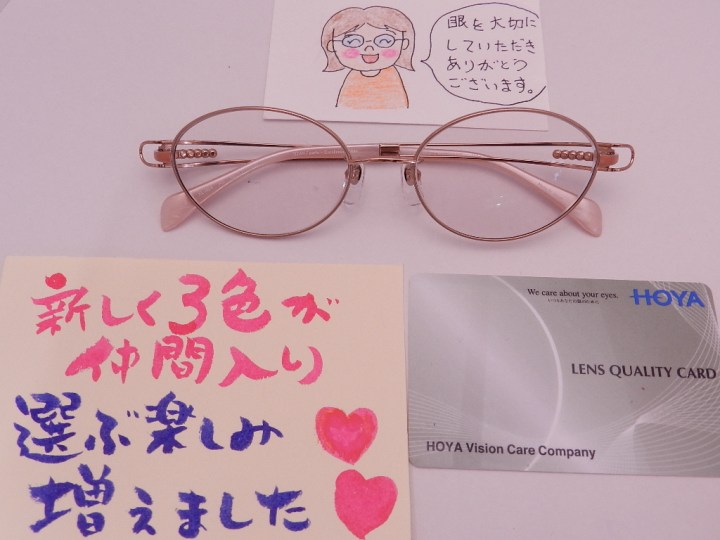 眼を大切に
していただき
ありがとう
ございます。
新しく3色が
仲間入り
選ぶ楽しみ
増えました
We care about your eyes.
HOYA
LENS QUALITY CARD
HOYA Vision Care Company